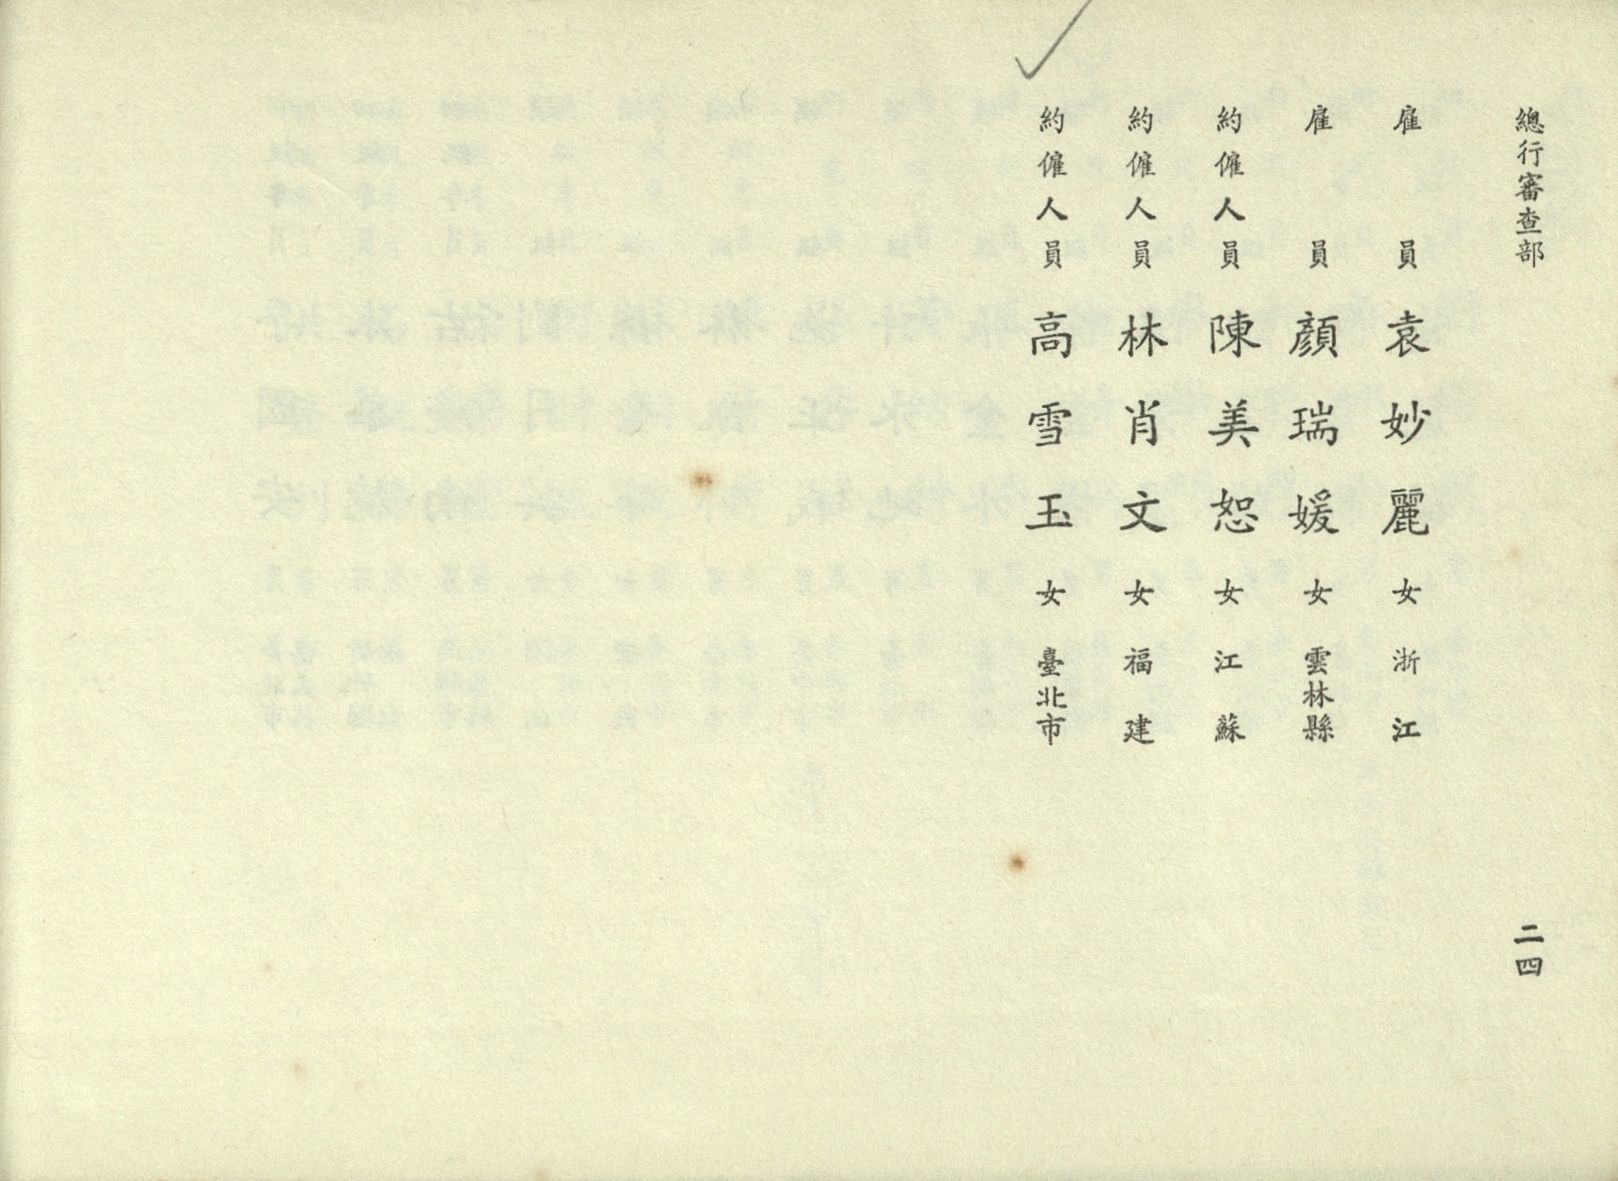 總行審查部 二四
雇員 袁妙麗 女 浙江
雇員 顏瑞媛 女 雲林縣
約僱人員 陳美恕 女 江蘇
約僱人員 林肖文 女 福建
約僱人員 高雪玉 女 臺北市